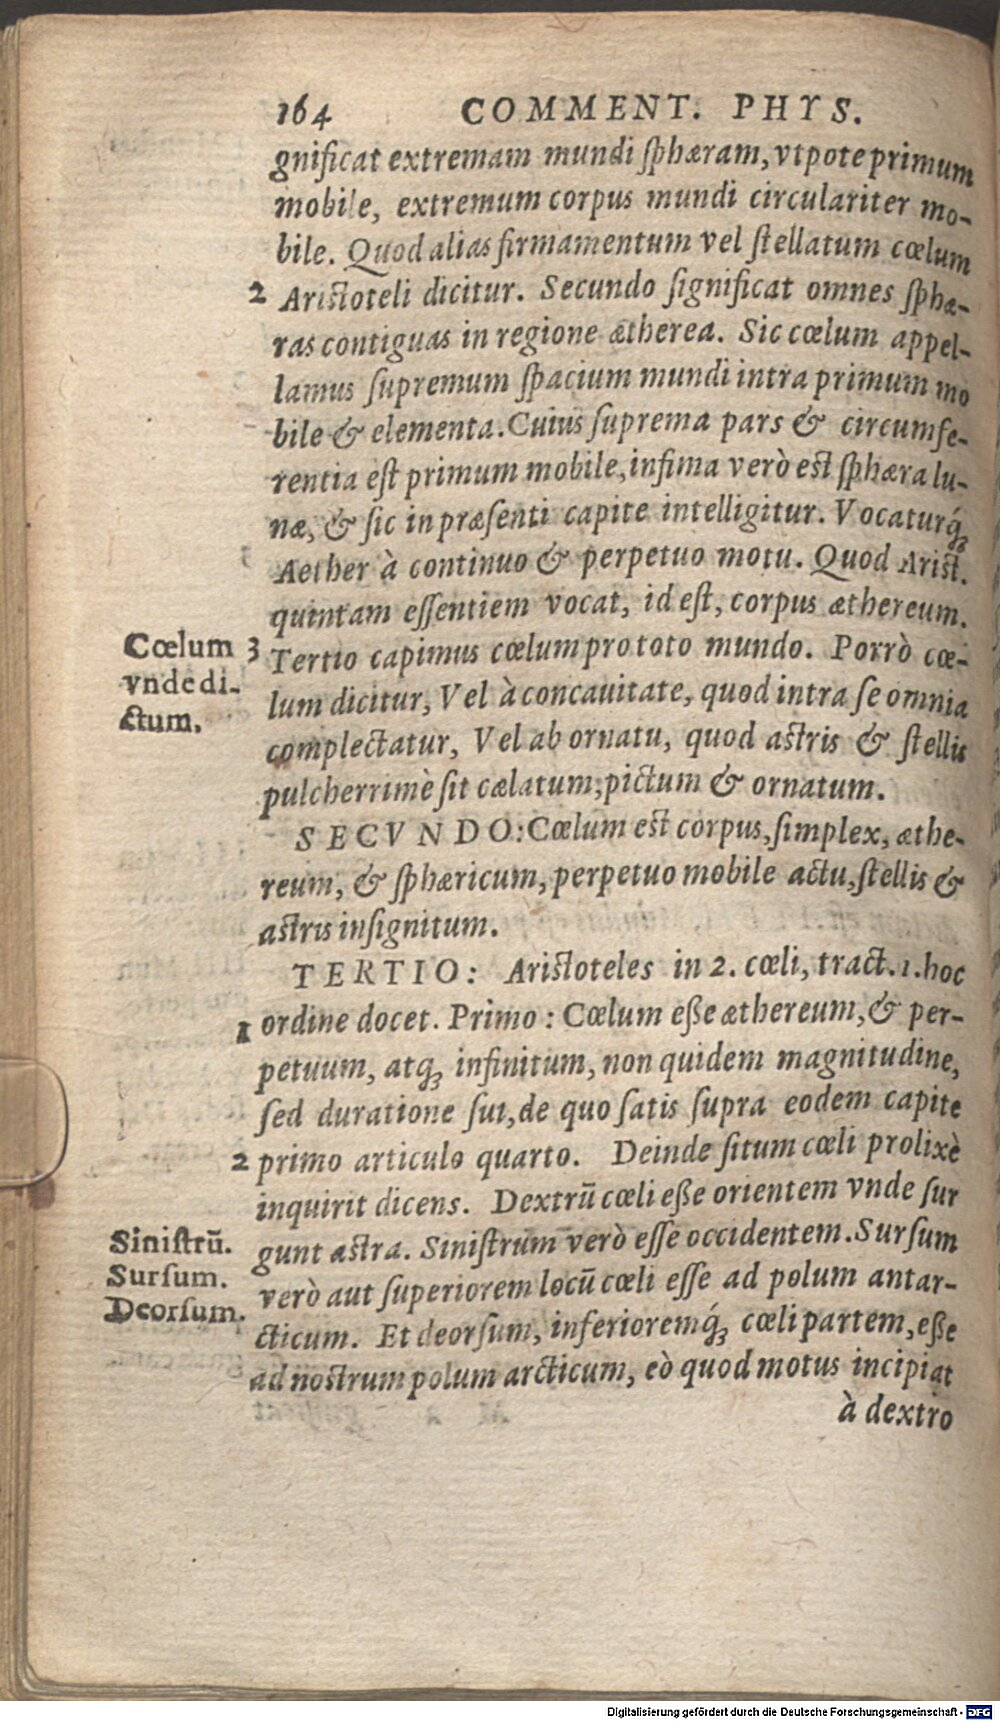 164 COMMENT. PHYS.
gnificat extremam mundi sphæram, vtpote primum
mobile, extremum corpus mundi circulariter mo-
bile. Quod alias firmamentum vel stellatum cœlum
2 Aristoteli dicitur. Secundo significat omnes sphæ-
ras contiguas in regione ætherea. Sic cœlum appel-
lamus supremum spacium mundi intra primum mo
bile & elementa. Cuius suprema pars & circumfe-
rentia est primum mobile, infima verò est sphæra lu-
næ, & sic in præsenti capite intelligitur. Vocaturq́;
Aether à continuo & perpetuo motu. Quod Arist.
quintam essentiem vocat, id est, corpus æthereum.
Cœlum 3 Tertio capimus cœlum pro toto mundo. Porrò cœ-
vnde di- lum dicitur, Vel à concauitate, quod intra se omnia
ctum. complectatur, Vel ab ornatu, quod astris & stellis
pulcherrimè sit cælatum, pictum & ornatum.
SECVNDO: Cœlum est corpus, simplex, æthe-
reum, & sphæricum, perpetuo mobile actu, stellis &
astris insignitum.
TERTIO: Aristoteles in 2. cœli, tract. 1. hoc
1 ordine docet. Primo: Cœlum eße æthereum, & per-
petuum, atq; infinitum, non quidem magnitudine,
sed duratione sui, de quo satis supra eodem capite
2 primo articulo quarto. Deinde situm cœli prolixè
inquirit dicens. Dextrũ cœli eße orientem vnde sur
Sinistrũ. gunt astra. Sinistrum verò esse occidentem. Sursum
Sursum. verò aut superiorem locũ cœli esse ad polum antar-
Deorsum. cticum. Et deorsum, inferioremq́; cœli partem, eße
ad nostrum polum arcticum, eò quod motus incipiat
à dextro
Digitalisierung gefördert durch die Deutsche Forschungsgemeinschaft - DFG